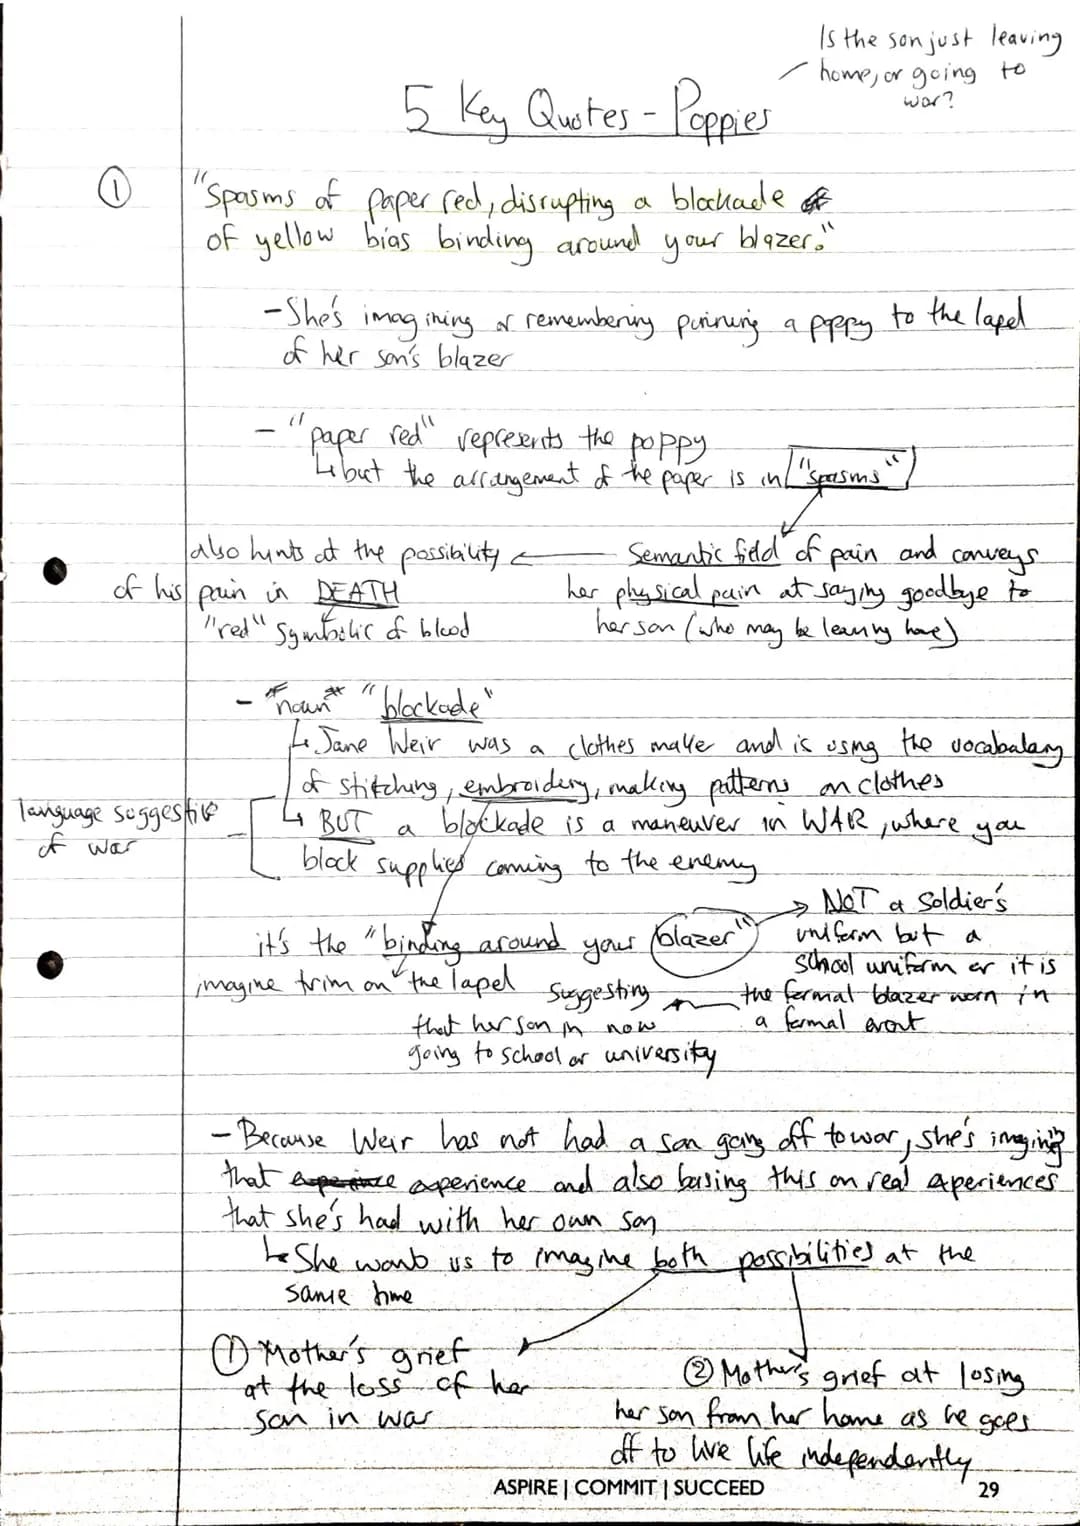 Is the son just leaving
home, or going to
war?
5 Key Quotes - Poppies
① "Spasms of paper red, disrupting a blockade
of yellow bias binding around your blazer."
- She's imagining or remembering pinning a poppy to the lapel
of her son's blazer
- "paper red" represents the poppy
↳ but the arrangement of the paper is in "spasms"
Semantic field of pain and conveys
her physical pain at saying goodbye to
her son (who may be leaving home)
also hints at the possibility
of his pain in DEATH
"red" symbolic of blood
- *noun* "blockade"
↳ Jane Weir was a clothes maker and is using the vocabalary
of stitching, embroidery, making patterns on clothes
↳ BUT a blockade is a maneuver in WAR, where you
block supplies coming to the enemy
language suggestive
of war
it's the "binding around your blazer"
imagine trim on the lapel
→ NOT a soldier's
uniform but a
school uniform or it is
the formal blazer worn in
a formal event
suggesting
that her son is now
going to school or university
- Because Weir has not had a son going off to war, she's imagining
that experience experience and also basing this on real experiences
that she's had with her own son
↳ She wants us to imagine both possibilities at the
same time
① Mother's grief
at the loss of her
son in war
② Mother's grief at losing
her son from her home as he goes
off to live life independently
ASPIRE | COMMIT | SUCCEED
29